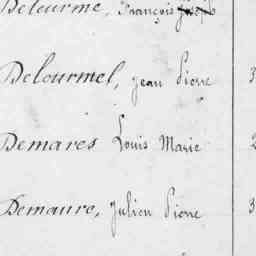 Deleurme, François Joseph
Delourmel, Jean Pierre 3
Demares Louis Marie 2
Demaure, Julien Pierre 3